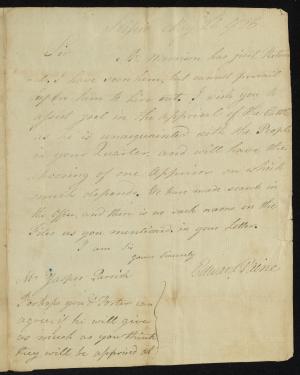 Sir
Mr Munson has just Return
ed. I have seen him, but cannot prevail
upon him to hire out. I wish you to
assist Joel in the Apprisal of the Cattle
as he is unacquainted with the People
in your Quarter and will have the
choosing of one Apprisor on which
much depends. We have made search in
the Office, and there is no such name in the
Files as you mentioned in your Letter.
I am Sir
yours Sincerely
Edward Paine
Mr Jasper Parrish
Perhaps you & Porter can
agree if he will give
us much as you think
they will be apprised at